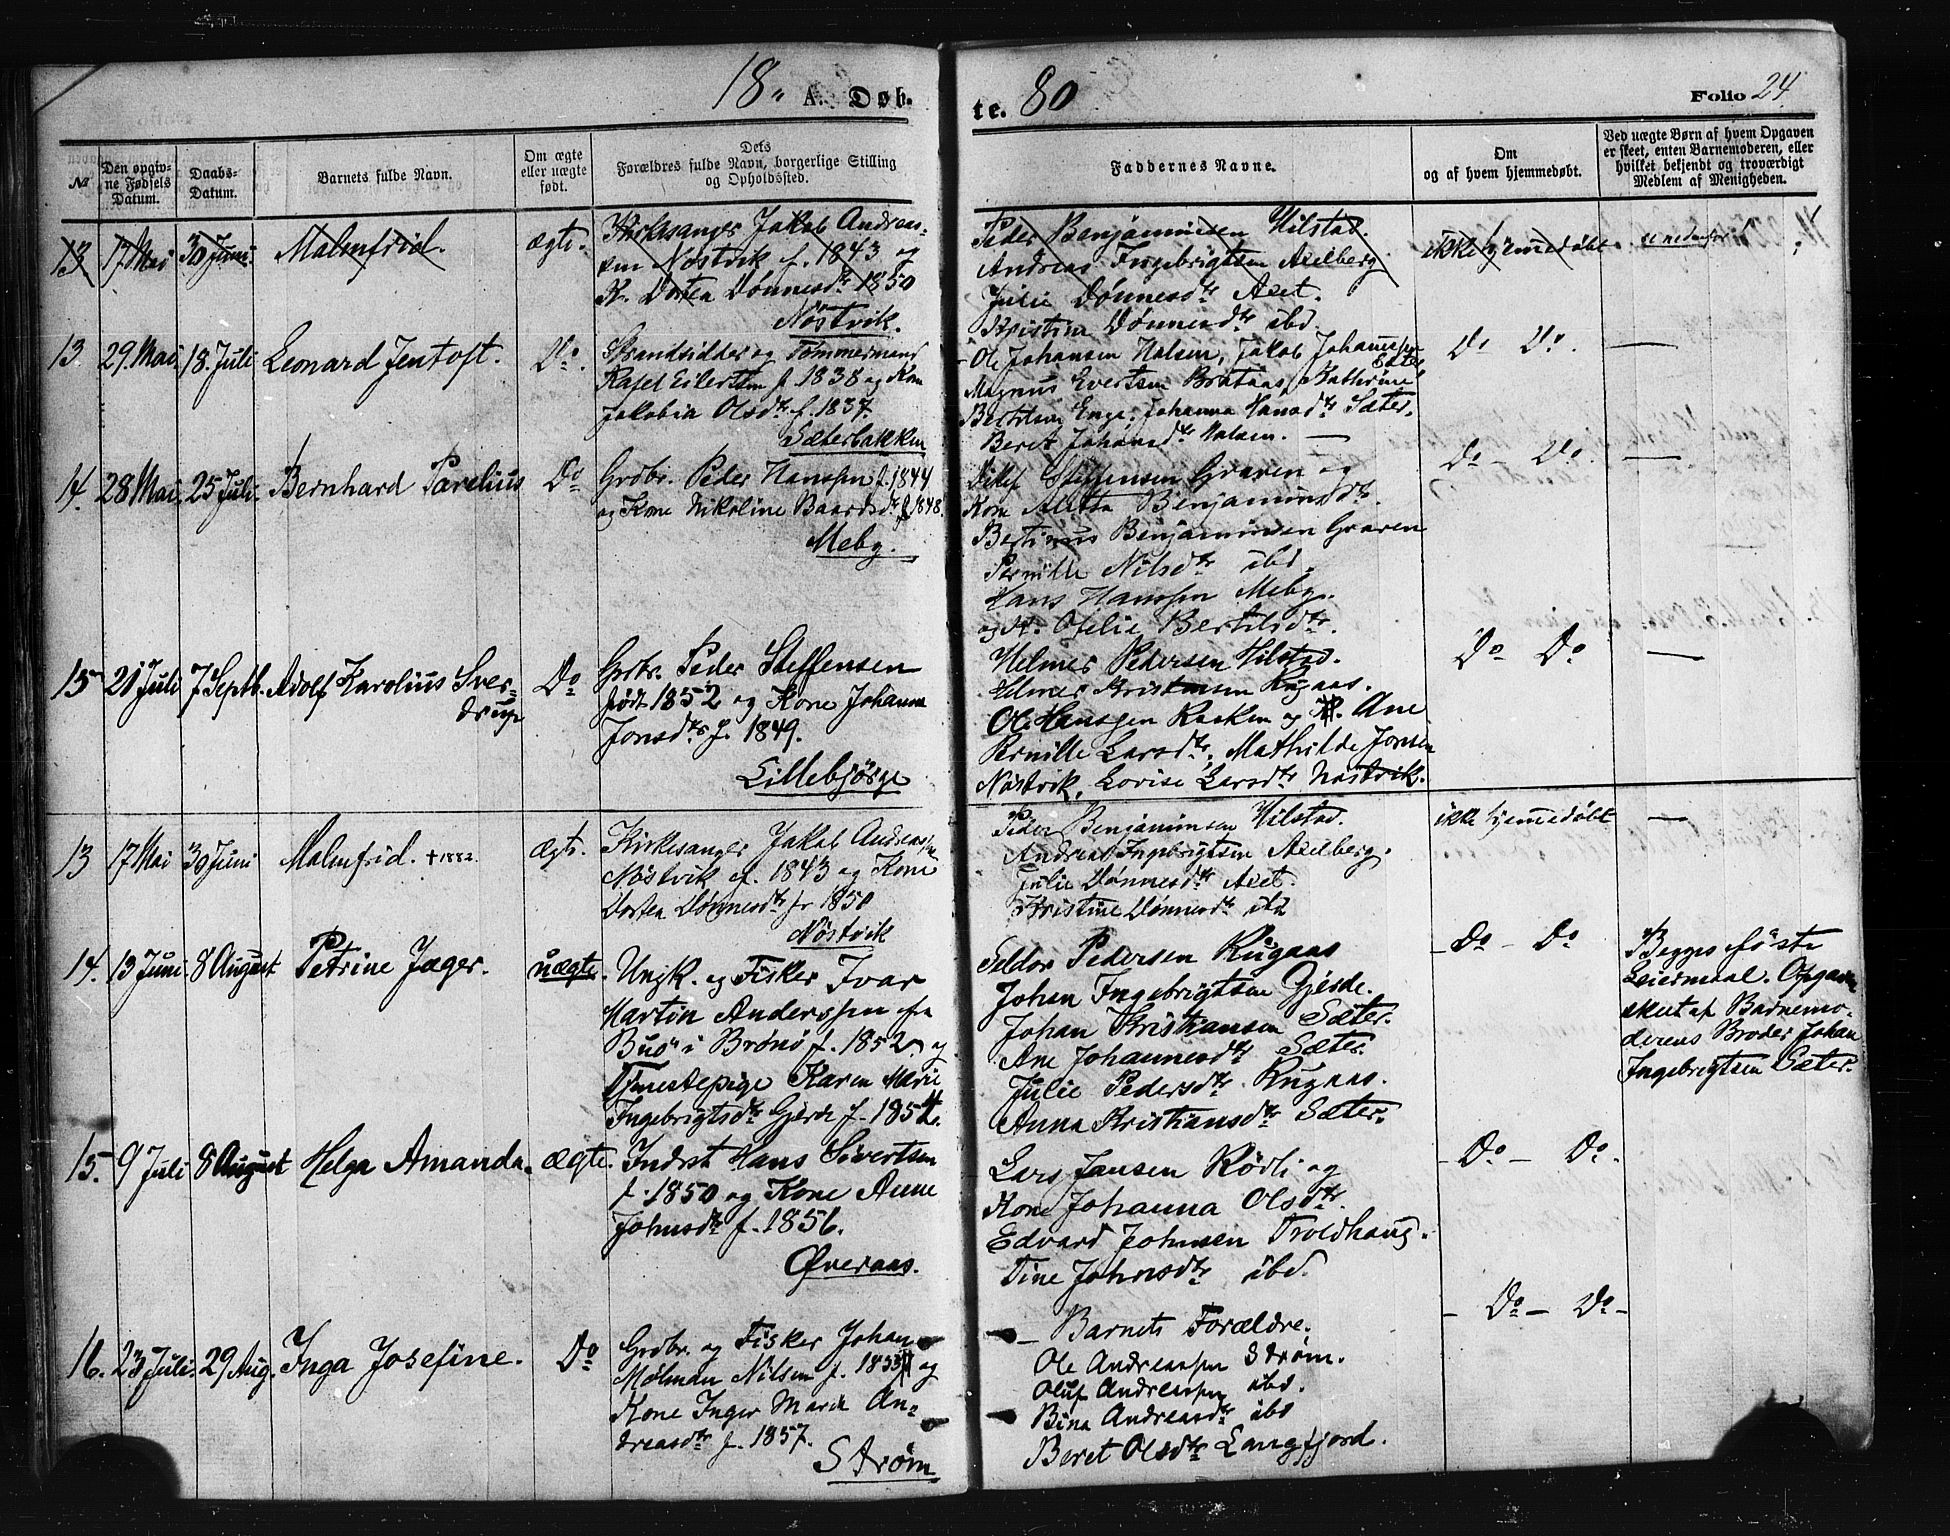 18 80
A. Døb-
te.
Folio 24.
№
Den opgiv-
ne Fødsels
Datum.
Daabs-
Datum.
Barnets fulde Navn.
Om ægte
eller uægte
født.
Dets
Forældres fulde Navn, borgerlige Stilling
og Opholdssted.
Faddernes Navne.
Om
og af hvem hjemmedøbt.
Ved uægte Børn af hvem Opgaven
er skeet, enten Barnemoderen, eller
hvilket bekjendt og troværdigt
Medlem af Menigheden.
13 17 Mai 30 Juni Malmfrid. ægte.
Kirkesanger Jakob Andreas-
sen Nöstvik f. 1843 og
K. Dorten Dönnesdtr 1850
Nöstvik.
Peder Benjaminsen Hilstad.
Andreas Ingebrigtsen Axelberg.
Julie Dönnesdtr Axet.
Kristine Dönnesdtr ibd.
ikke hjemmedöbt se nedenfor
13. 29. Mai 18. Juli Leonard Jentoft. Do.
Strandsidder og Tömmermand
Rafel Eilertsen f. 1838 og Kone
Jakobia Olsdtr f. 1837.
Sæterbakken
Ole Johansen Halsen, Jakob Johannessen
Sæter
Magnus Evertsen Brataas, Kathrine
Bertitsen Enge, Johanna Hansdtr Sæter.
Beret Johansdtr Halsen. —
Do Do. —
14. 28 Mai. 25 Juli. Bernhard Parelius Do
Grdbr. Peder Hanssen f. 1844
og Kone Nikoline Baardsdtr f. 1848.
Meby.
Detlef Steffensen Graven og
Kone Aletta Benjaminsdtr.
Bertinus Benjaminsen Graven
Pernille Nilsdtr ibd.
Hans Hanssen Meby.
og K. Ofelie Bertilsdtr.
Do — Do. —
15 20 Juli 7 Septb. Adolf Karolius Sver-
drup
Do
Grbr. Peder Steffensen
født 1852 og Kone Johanna
Jonsdtr f. 1849.
Lillebjörge
Helmer Pedersen Hilstad.
Helmer Kristensen Rugaas.
Ole Hanssen Rasken og P. Ane
Pernille Larsdtr, Mathilde Jonsen
Nöstvik, Lovise Larsdtr Nöstvik.
Do Do —
13 17 Mai 30 Juni Malmfrid. †1882. Ægte.
Kirkesanger Jakob Andreassen
Nöstvik f. 1843 og Kone
Dorten Dönnesdtr f. 1850
Nöstvik
Peder Benjaminsen Hilstad.
Andreas Ingebrigtsen Axelberg.
Julie Dönnesdtr Axet.
Kristine Dönnesdtr ibd
ikke hjemmedöbt —
14. 13 Juni 8 August Petrine Jæger. uægte.
Ungk. og Fisker Ivar
Martin Anderssen fra
Buö i Brönö f. 1852. og
Tjenestepige Karen Marie
Ingebrigtsdtr Gjerde f. 1854.
Seldor Pedersen Rugaas
Johan Ingebrigtsen Gjerde.
Johan Kristiansen Sæter.
Ane Johannesdtr Sæter.
Julie Pedersdtr Rugaas.
Anna Kristiansdtr Sæter.
— Do — Do
Begges förste
Leiermaal. Opgave
skeet af Barnemo-
derens Broder Johan
Ingebrigtsen Sæter.
15. 9 Juli 8 August Helga Amanda. Ægte.
Indrst Hans Sivertsen
f. 1850 og Kone Anne
Johnsdtr f. 1856.
Øveraas.
Lars Jansen Rödli og
Kone Johanna Olsdtr.
Edvard Johnsen Troldhaug.
Tine Johnsdtr ibd.
— Do — Do.
16. 23 Juli. 29 Aug. Inga Josefine. Do
Grdbr. og Fisker Johan
Mölman Nilsen f. 1853 og
Kone Inger Marie An-
dreasdtr f. 1857.
Ström
— Barnets Forældre,
Ole Andreassen Ström.
Oluf Andreassen ibd.
Bina Andreasdtr ibd
Beret Olsdtr Langfjord.
— Do — Do —